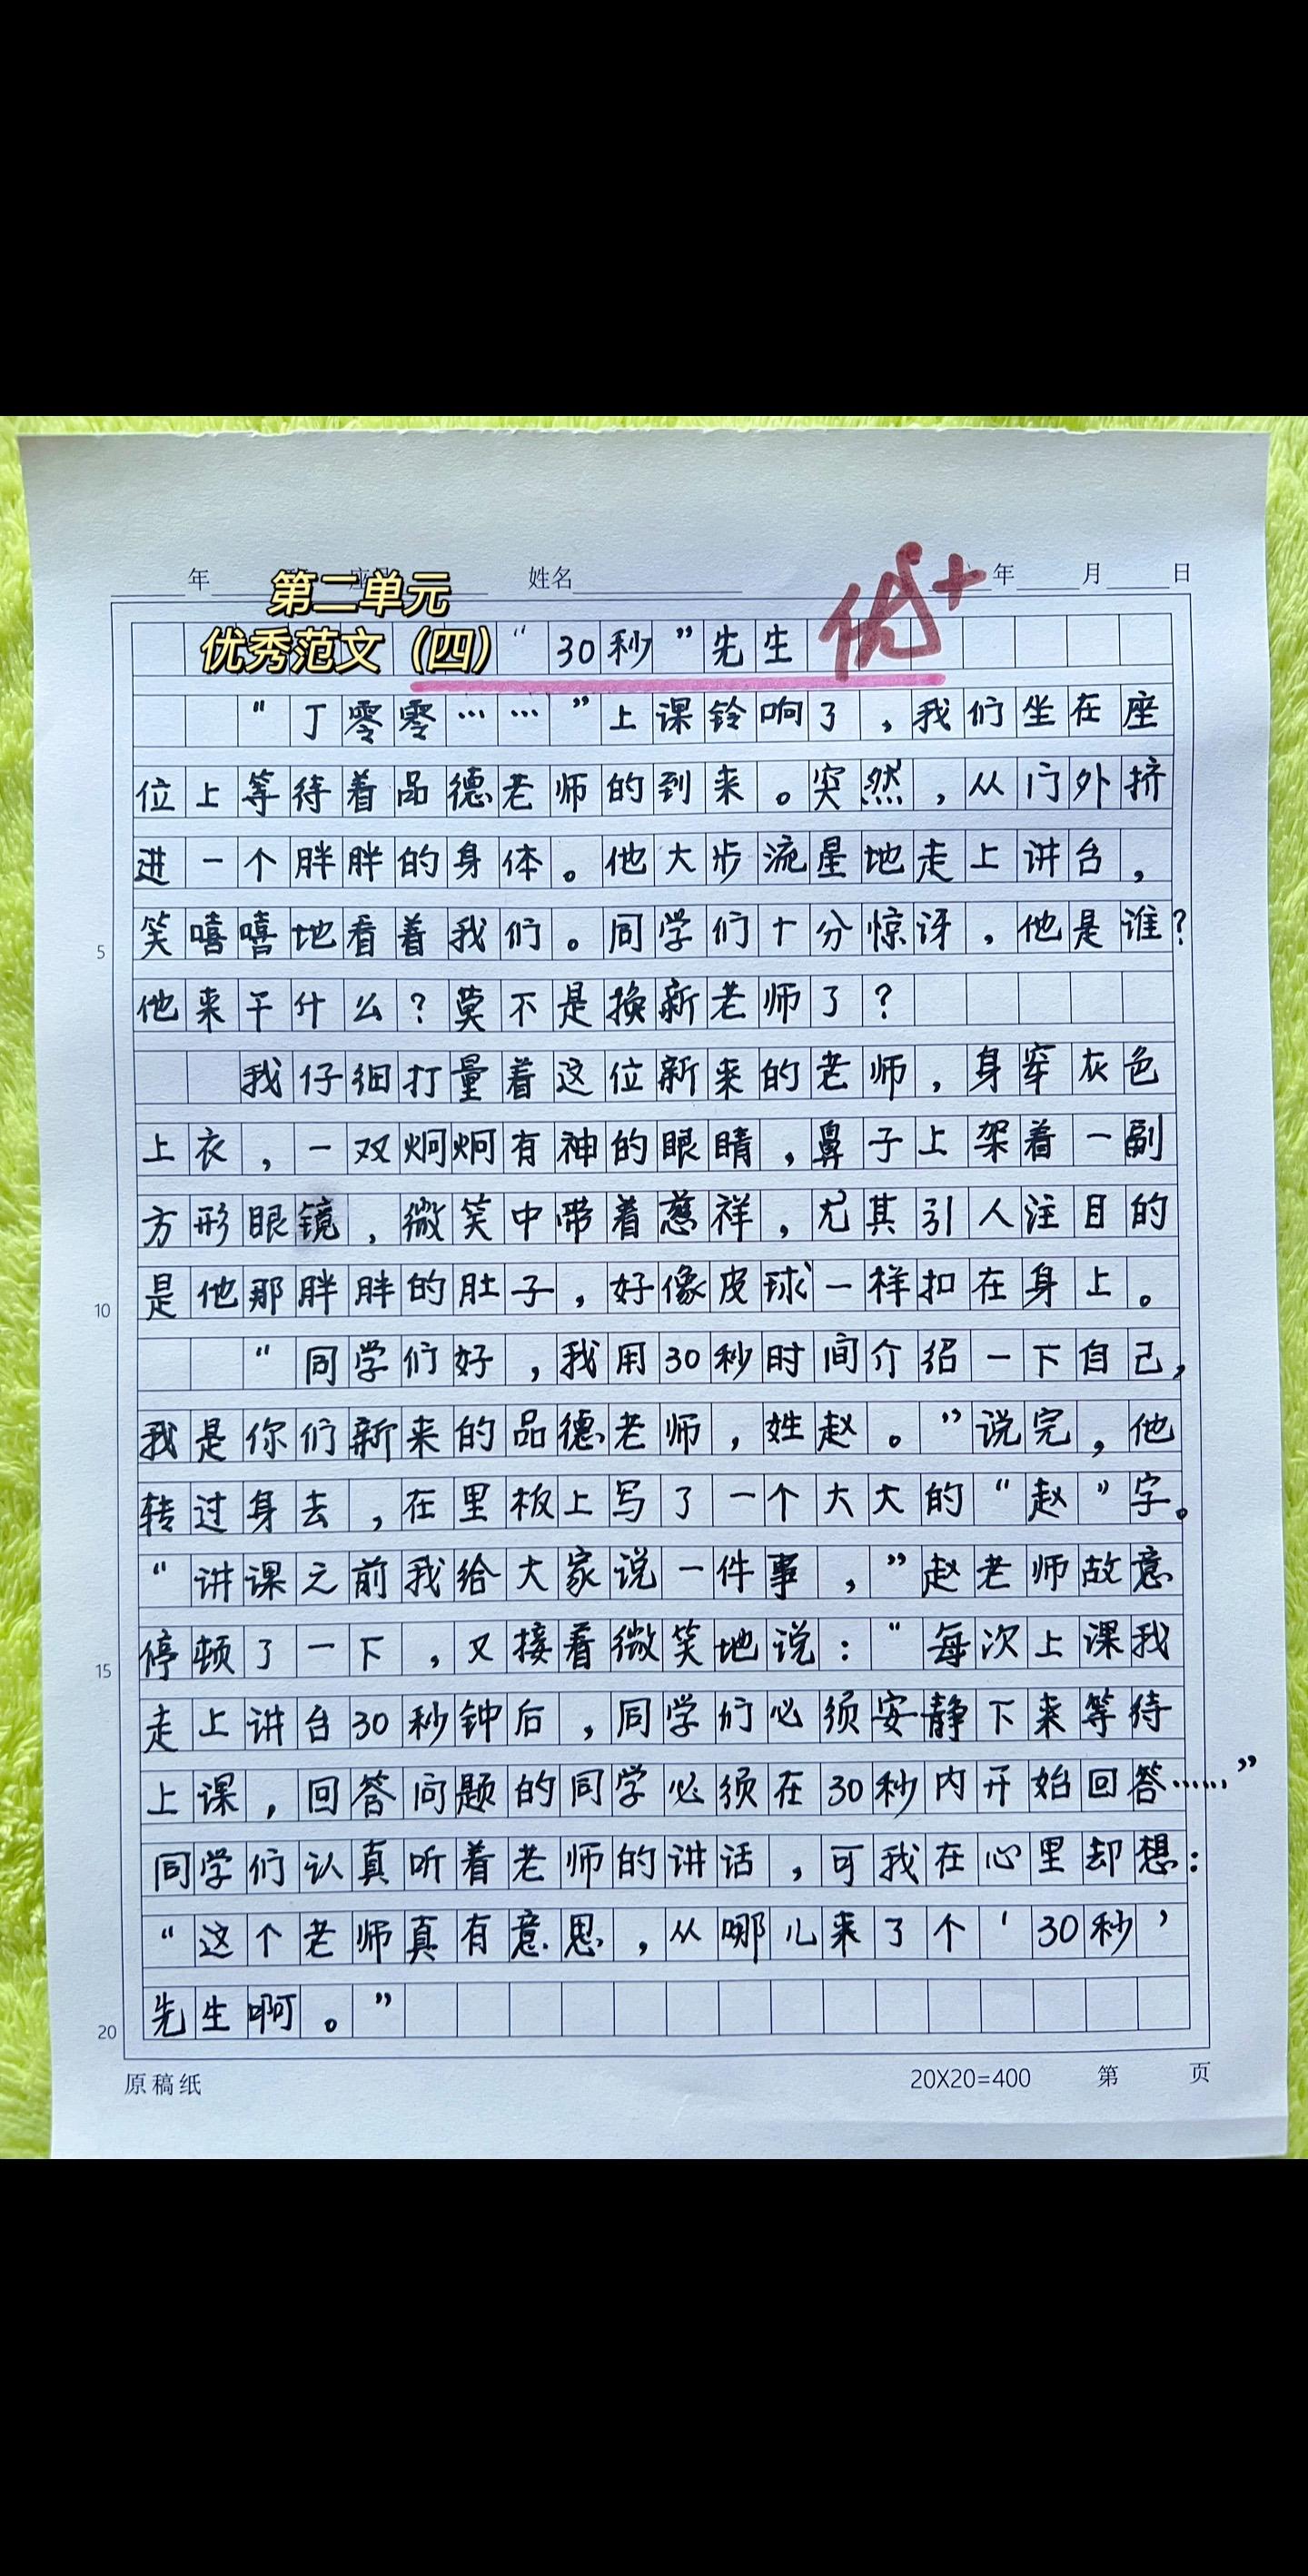 年 姓名 年 月 日
第二单元
优秀范文（四）
“30秒”先生
优+
“丁零零……”上课铃响了，我们坐在座
位上等待着品德老师的到来。突然，从门外挤
进一个胖胖的身体。他大步流星地走上讲台，
笑嘻嘻地看着我们。同学们十分惊讶，他是谁？
5
他来干什么？莫不是换新老师了？
我仔细打量着这位新来的老师，身穿灰色
上衣，一双炯炯有神的眼睛，鼻子上架着一副
方形眼镜，微笑中带着慈祥，尤其引人注目的
是他那胖胖的肚子，好像皮球一样扣在身上。
10
“同学们好，我用30秒时间介绍一下自己，
我是你们新来的品德老师，姓赵。”说完，他
转过身去，在里板上写了一个大大的“赵”字。
“讲课之前我给大家说一件事，”赵老师故意
停顿了一下，又接着微笑地说：“每次上课我
15
走上讲台30秒钟后，同学们必须安静下来等待
上课，回答问题的同学必须在30秒内开始回答……”
同学们认真听着老师的讲话，可我在心里却想：
“这个老师真有意思，从哪儿来了个‘30秒’
先生啊。”
20
原稿纸 20X20=400 第 页